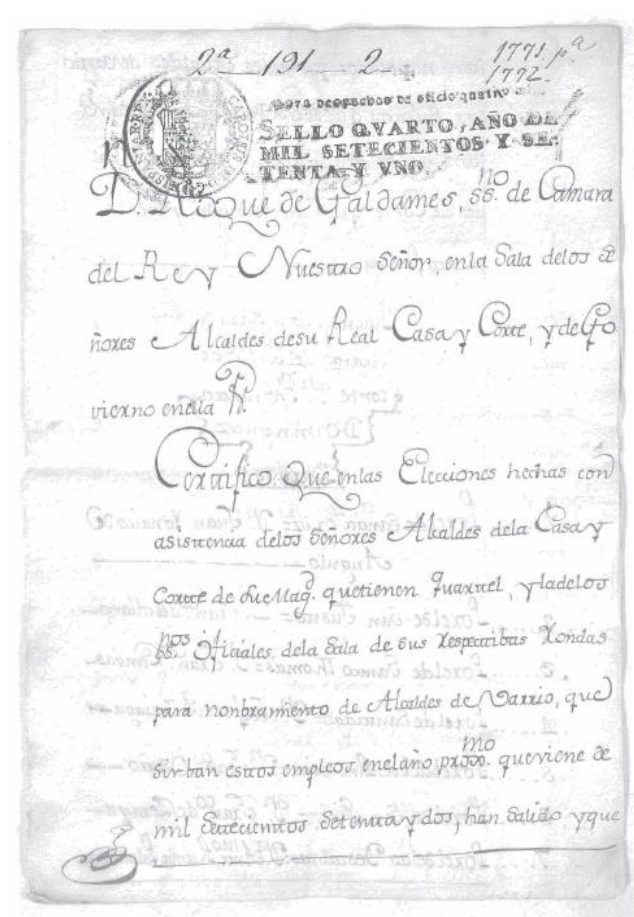 2ª 191 2 1771. pª
1772.
PARA DESPACHOS DE OFICIO QUATRO
SELLO QVARTO, AÑO DE
MIL SETECIENTOS Y SE-
TENTA Y VNO.
D. Roque de Galdames, ss.no de Camara
del Rey Nuestro Señor, enla Sala delos Se
ñores Alcaldes desu Real Casa y Corte, y de Go
vierno enella
Certifico Que enlas Elecciones hechas con
asistencia delos Señores Alcaldes dela Casa y
Corte de Su Mag.d quetienen Quartel, y la delos
ss.nos Oficiales dela Sala de sus respectibas Rondas
para nonbramiento de Alcaldes de Varrio, que
sirban estos empleos enelaño proxo.mo queviene de
mil Setecientos Setenta y dos, han Salido yque